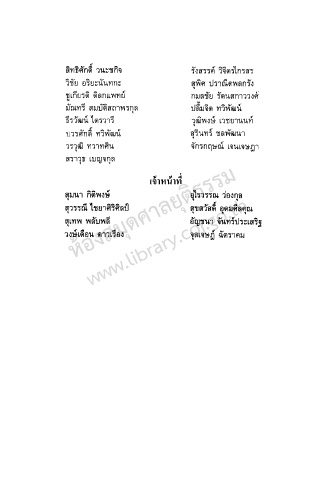 สิทธิศักดิ์ วนะชกิจ
วิชัย อริยะนันทกะ
ชูเกียรติ ดิลกแพทย์
มัณทรี สมบัติสถาพรกุล
ธีรวัฒน์ ไตรวารี
บวรศักดิ์ ทวิพัฒน์
วรวุฒิ ทวาทศิน
สราวุธ เบญจกุล
รังสรรค์ วิจิตรไกรสร
สุพิศ ปราณีตพลกรัง
กมลชัย รัตนสกาววงศ์
ปลื้มจิต ทวิพัฒน์
วุฒิพงษ์ เวชยานนท์
สุรินทร์ ชลพัฒนา
จักรกฤษณ์ เจนเจษฎา
เจ้าหน้าที่
สุมนา กิติพงษ์
สุวรรณี ไชยาศิริศิลป์
สุเทพ พลับพลี
วงษ์เดือน ดาวเรือง
อุไรวรรณ ว่องกุล
สุขสวัสดิ์ อุดมศิลคุณ
อัญชนา จันทร์ประเสริฐ
จุลเจษฎ์ ฉัตราคม
ห้องสมุดศาลยุติธรรม
www.library.coj.go.th